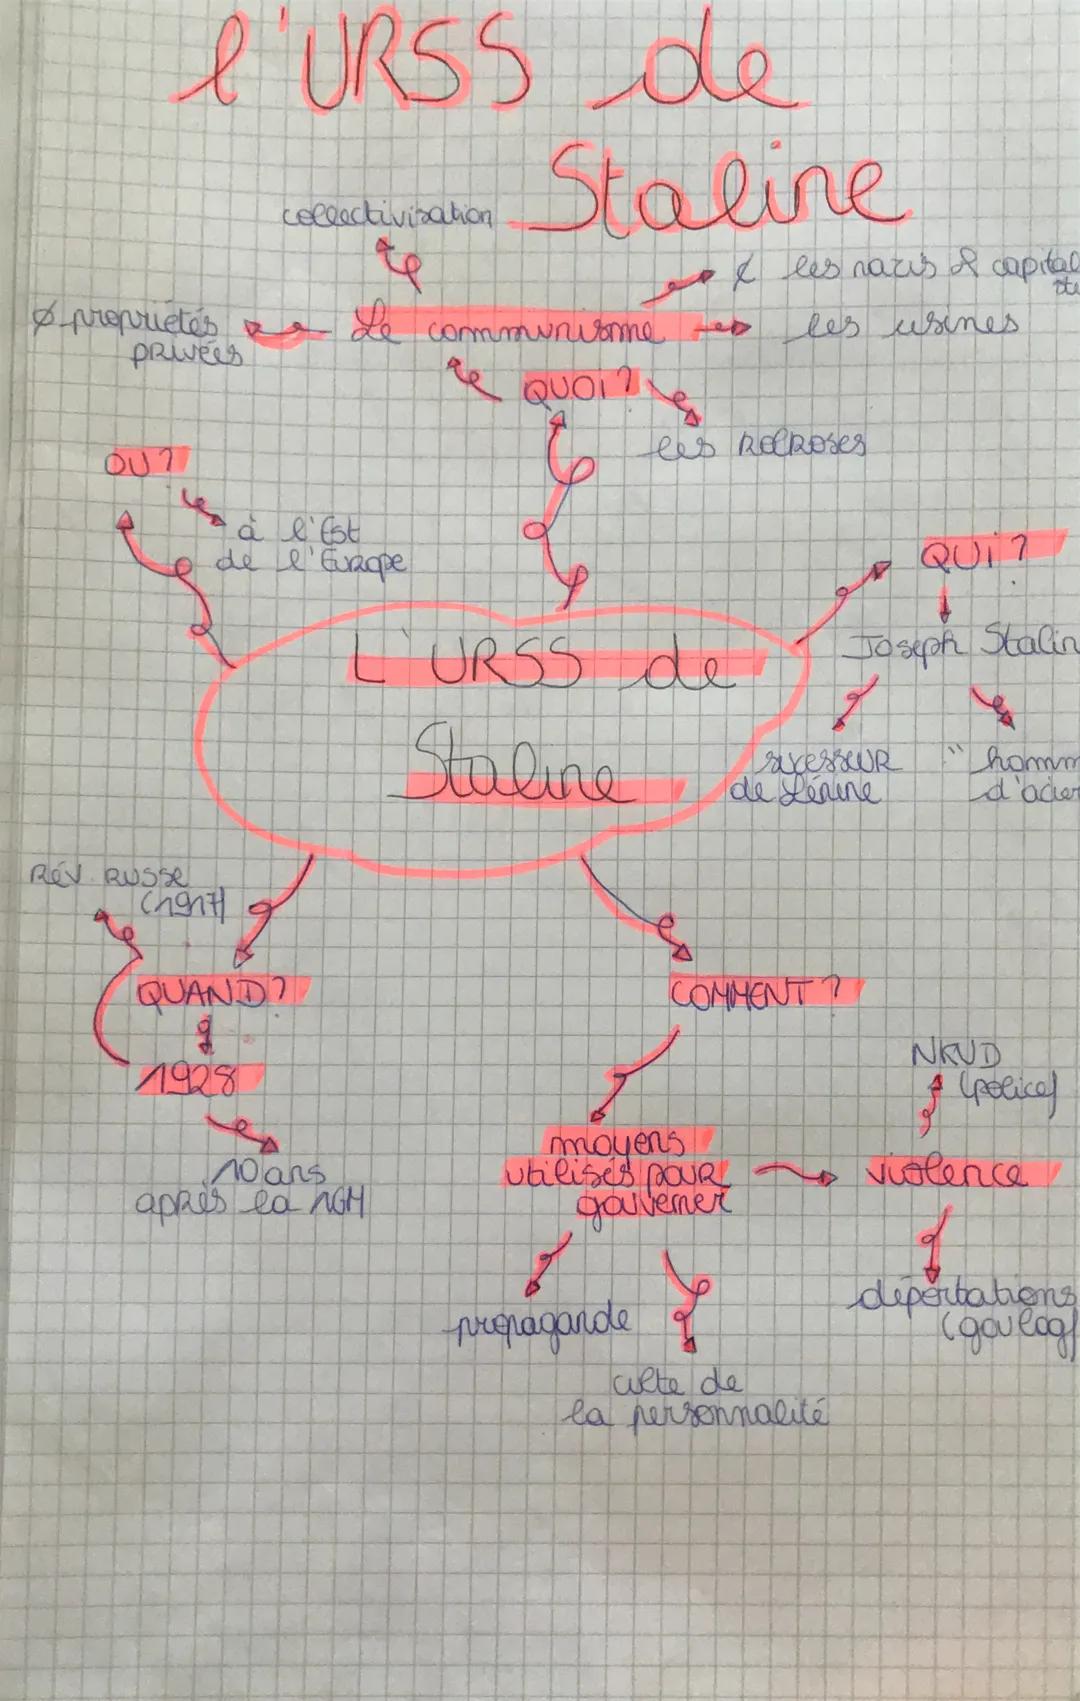 l'URSS de
Staline
collectivisation
≠ les nazis & capital
ste
Ø propriétés
privées
Le communisme
les usines
QUOI?
les kolkozes
OU?
à l'Est
de l'Europe
QUI?
L'URSS de
Staline
Joseph Stalin
sucesseur
de Lénine
" homm
d'acier
Rév. Russe
(1917)
QUAND?
1928
10 ans
après la 1GM
COMMENT?
NKVD
(police)
moyens
utilisés pour
gouverner
violence
propagande
culte de
la personnalité
déportations
(goulag)